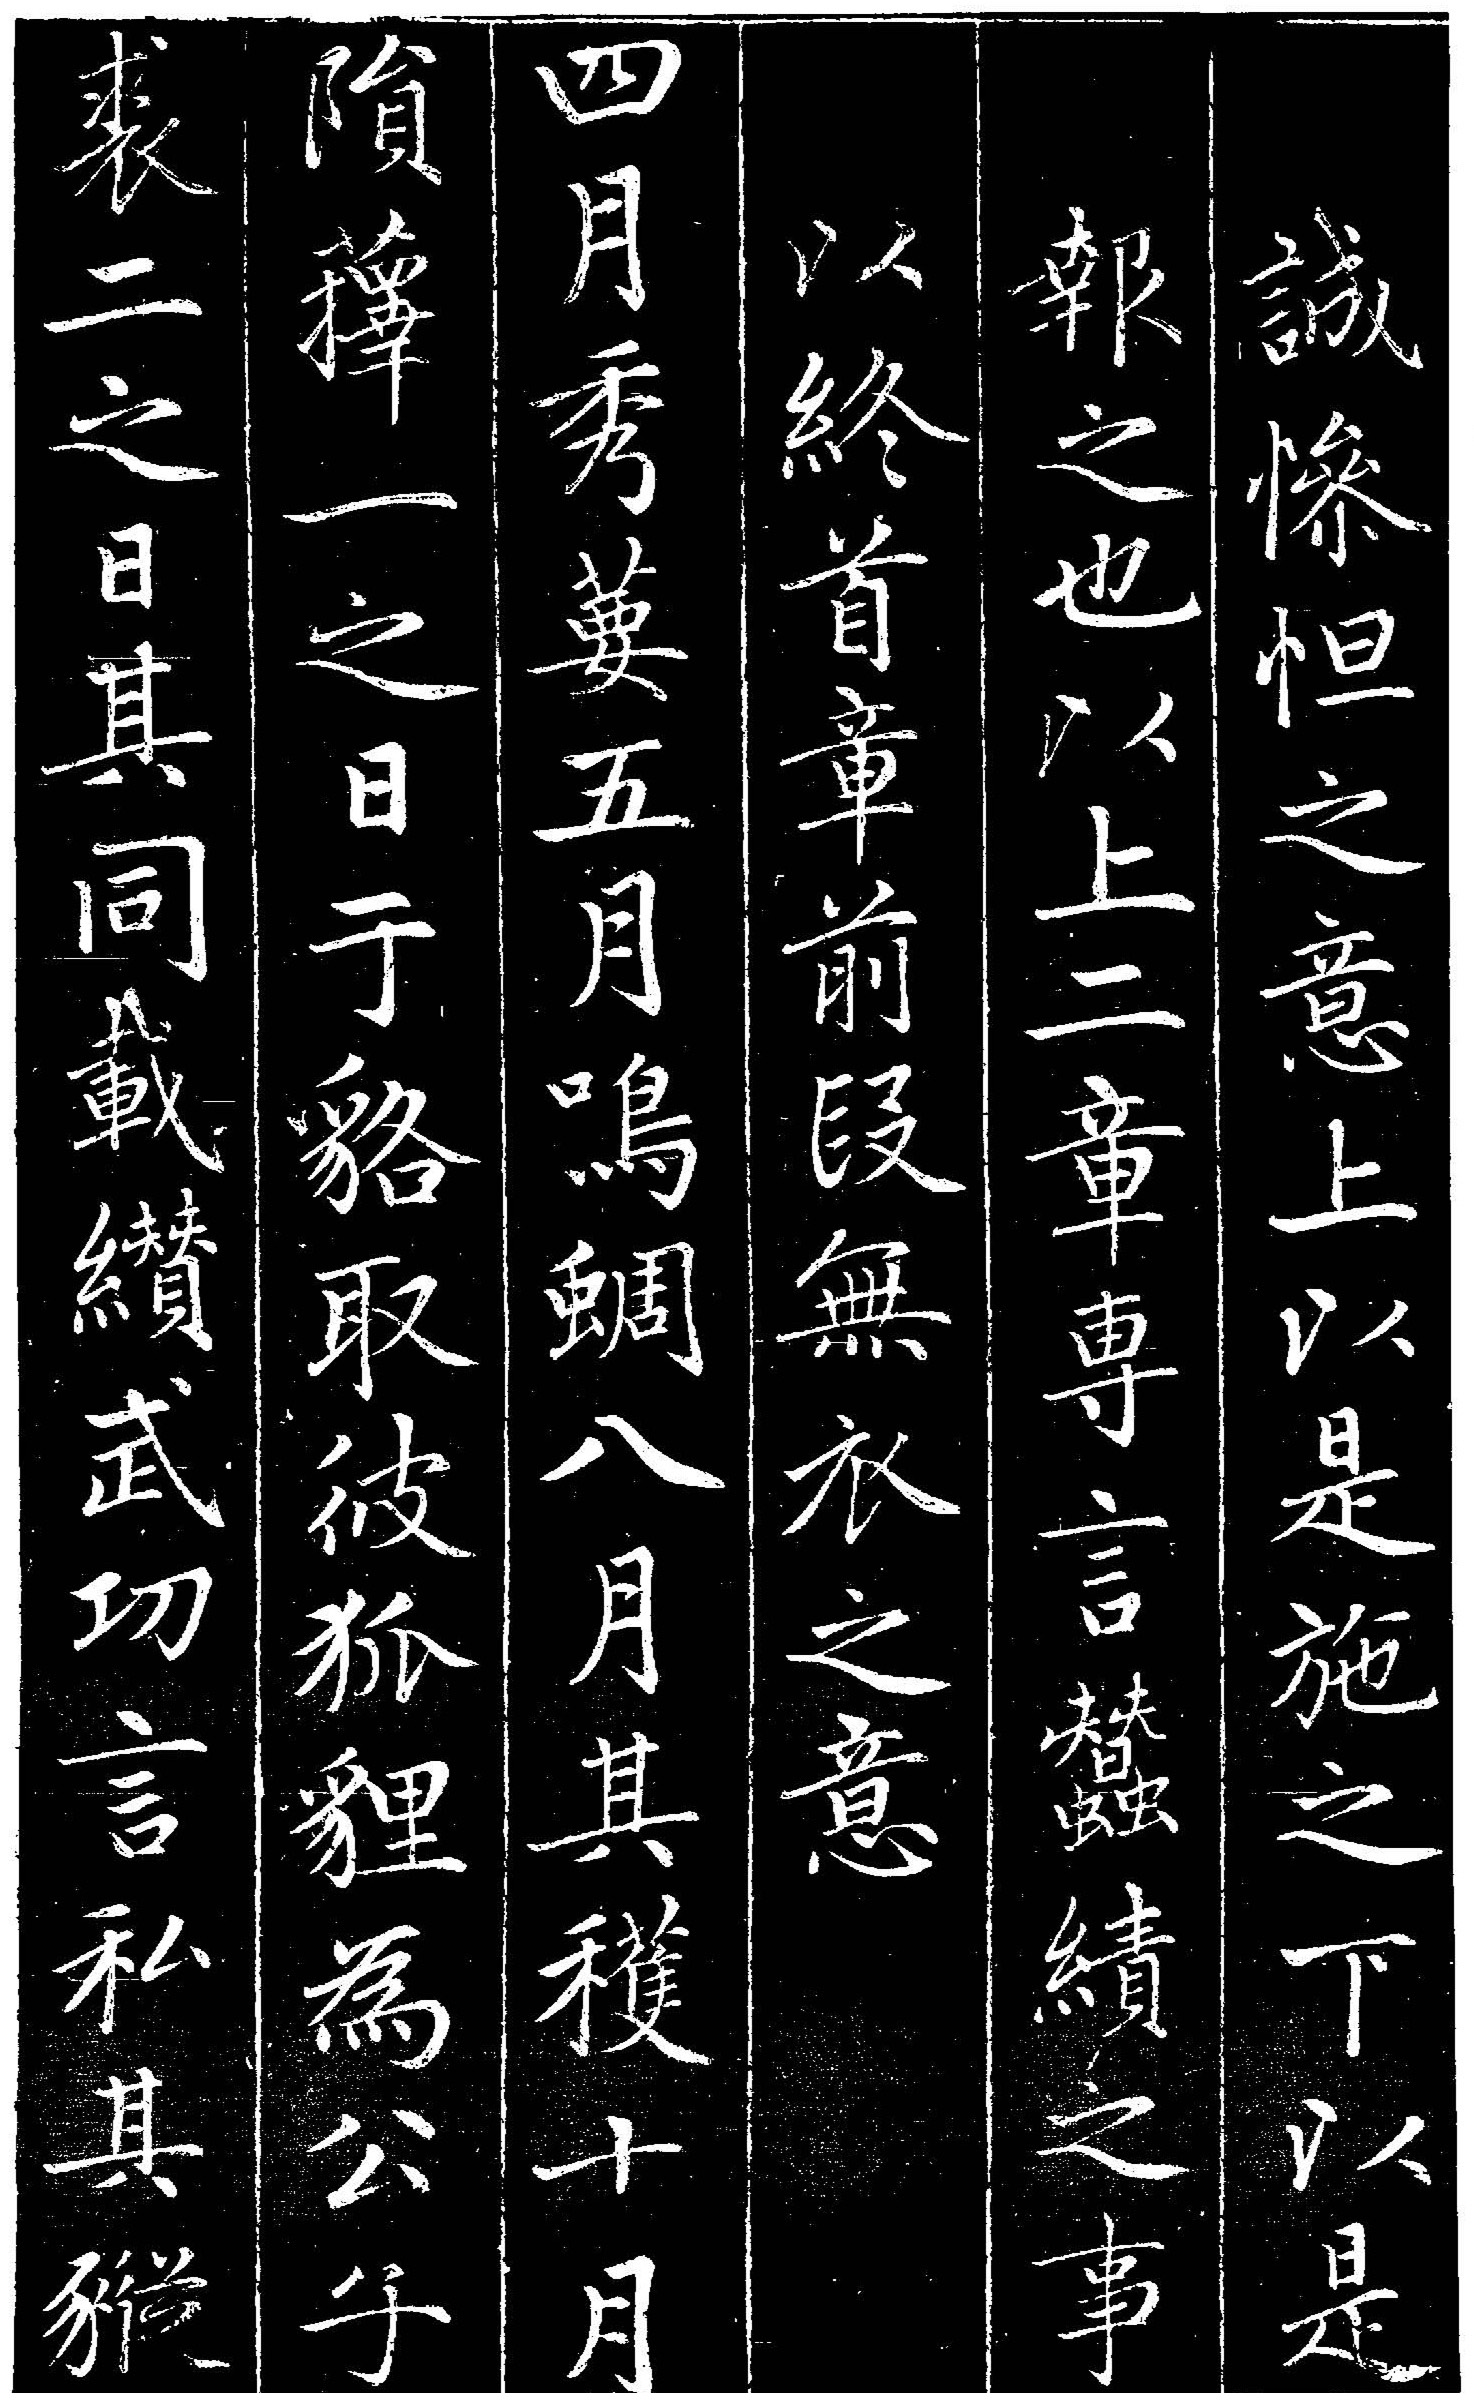 誠慘怛之意上以是施之下以是
報之也以上二章專言蠶績之事
以終首章前段無衣之意
四月秀葽五月鳴蜩八月其穫十月
隕蘀一之日于貉取彼狐貍為公子
裘二之日其同載纘武功言私其豵